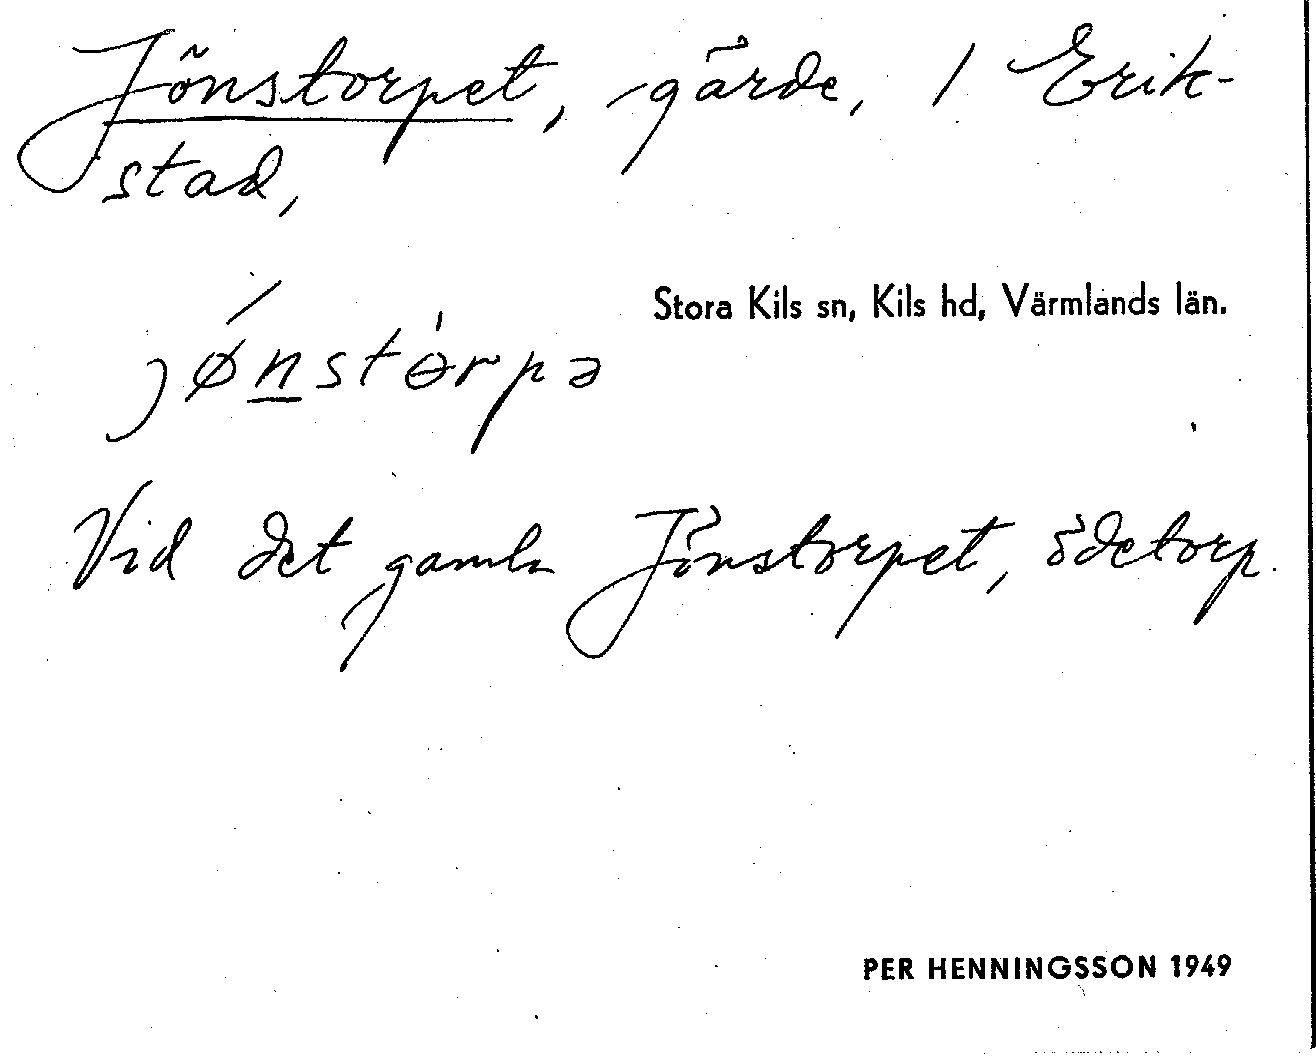 Jönstorpet, gärde, / Erik-
stad,
Stora Kils sn, Kils hd, Värmlands län.
jǿnstɵ̀rpə
Vid det gamla Jönstorpet, ödetorp.
PER HENNINGSSON 1949